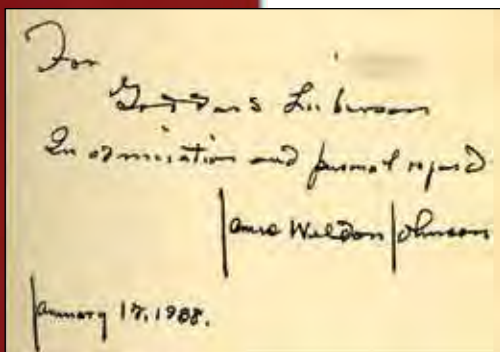 For
Goddard Lieberson
In admiration and personal regard
James Weldon Johnson
January 17, 1938.